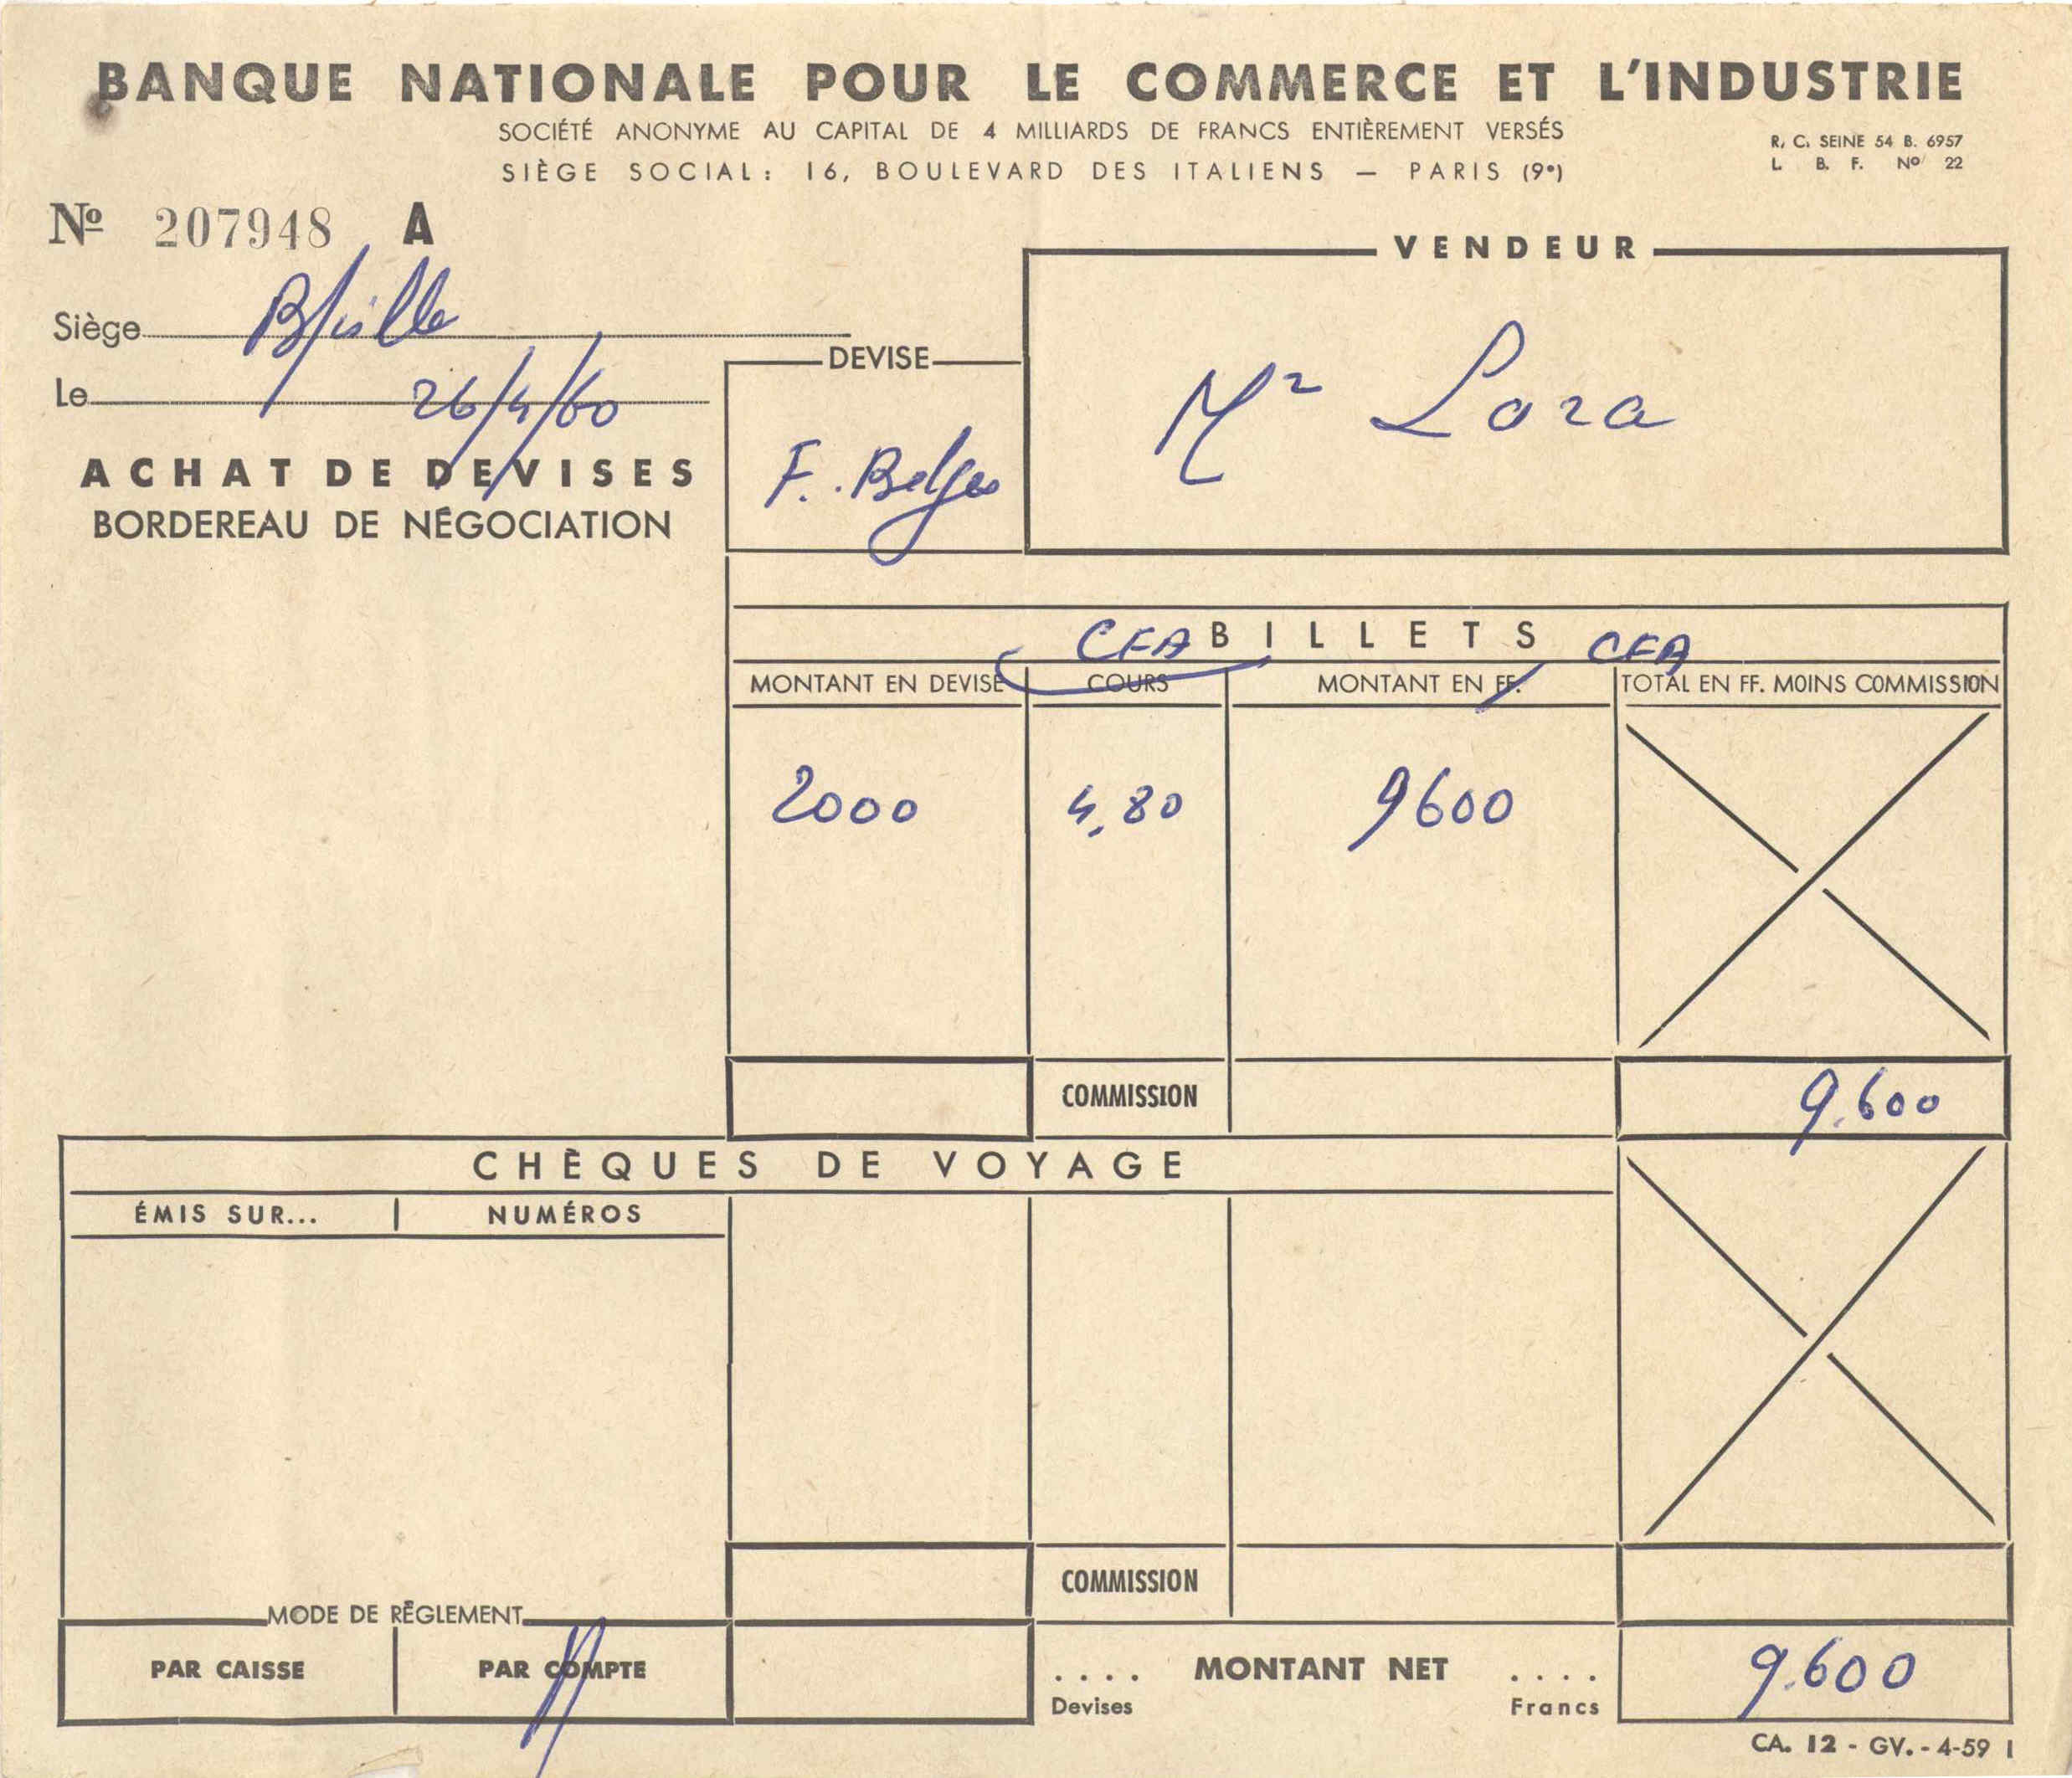 BANQUE NATIONALE POUR LE COMMERCE ET L'INDUSTRIE
SOCIÉTÉ ANONYME AU CAPITAL DE 4 MILLIARDS DE FRANCS ENTIÈREMENT VERSÉS
SIÈGE SOCIAL: 16, BOULEVARD DES ITALIENS — PARIS (9e)
R. C. SEINE 54 B. 6957
L B. F. No 22
No 207948 A
VENDEUR
Mr Lora
Siège
Le 26/4/60
DEVISE
F. Belges
ACHAT DE DEVISES
BORDEREAU DE NÉGOCIATION
CFA BILLETS CFA
MONTANT EN DEVISE COURS MONTANT EN FF. TOTAL EN FF. MOINS COMMISSION
2000 4,80 9600
COMMISSION 9.600
CHÈQUES DE VOYAGE
ÉMIS SUR... NUMÉROS
COMMISSION
MODE DE RÈGLEMENT
PAR CAISSE PAR COMPTE
.... MONTANT NET .... 9.600
Devises Francs
CA. 12 - GV. - 4-59 I